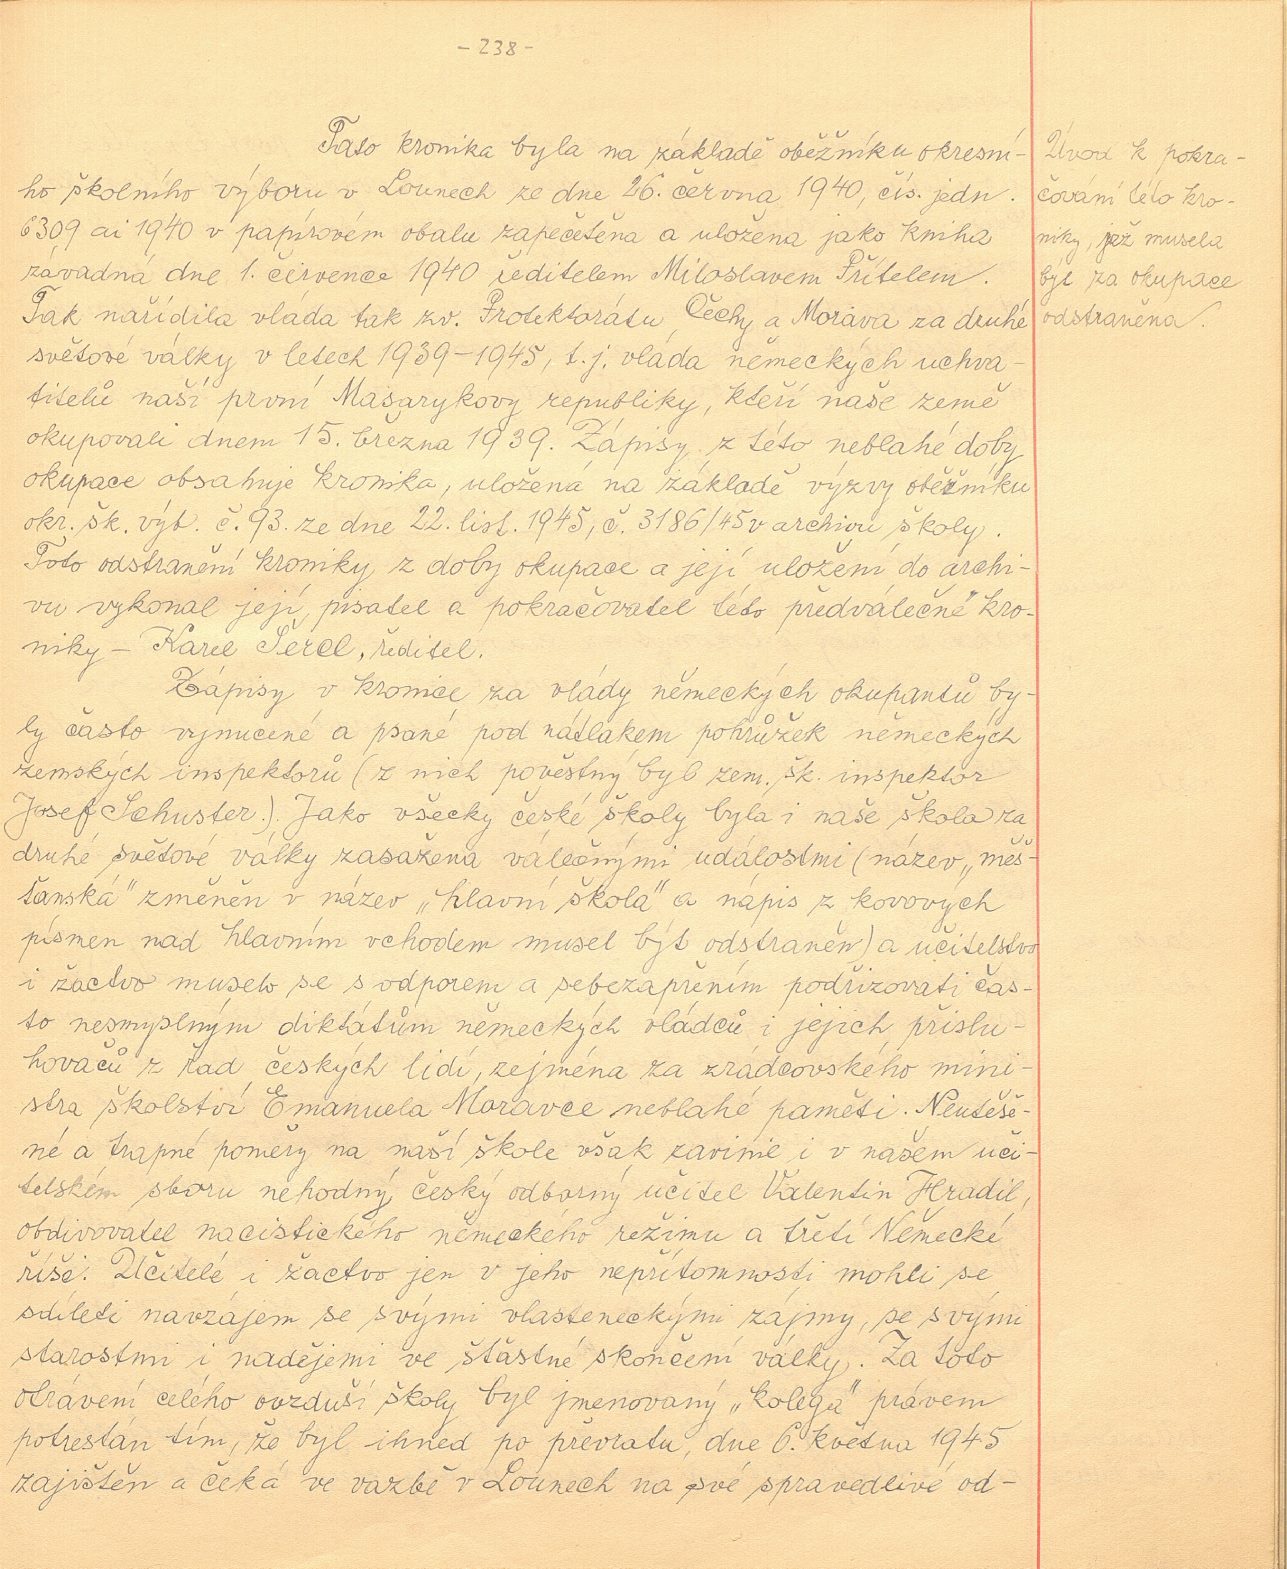 - 238 -
Tato kronika byla na základě oběžníku okresní-
ho školního výboru v Lounech ze dne 26. června 1940, čís. jedn.
6309 ai 1940 v papírovém obalu zapečetěna a uložena jako kniha
závadná dne 1. července 1940 ředitelem Miloslavem Přítelem.
Tak nařídila vláda tak zv. Protektorátu Čechy a Morava za druhé
světové války v letech 1939-1945, t. j. vláda německých uchva-
titelů naší první Masarykovy republiky, kteří naše země
okupovali dnem 15. března 1939. Zápisy z této neblahé doby
okupace obsahuje kronika, uložená na základě výzvy oběžníku
okr. šk. výb. č. 93. ze dne 22. list. 1945, č. 3186/45 v archivu školy.
Toto odstranění kroniky z doby okupace a její uložení do archi-
vu vykonal její pisatel a pokračovatel této "předválečné" kro-
niky - Karel Šércl, ředitel.
Zápisy v kronice za vlády německých okupantů by-
ly často vynucené a psané pod nátlakem pohrůžek německých
zemských inspektorů (z nich pověstný byl zem. šk. inspektor
Josef Schuster.). Jako všecky české školy byla i naše škola za
druhé světové války zasažena válečnými událostmi (název „měš-
ťanská" změněn v název „hlavní škola" a nápis z kovových
písmen nad hlavním vchodem musel být odstraněn) a učitelstvo
i žactvo muselo se s odporem a sebezapřením podřizovati čas-
to nesmyslným diktátům německých vládců i jejich přislu-
hovačů z řad českých lidí, zejména za zrádcovského mini-
stra školství Emanuela Moravce neblahé paměti. Neutěše-
né a trapné poměry na naší škole však zavinil i v našem uči-
telském sboru nehodný český odborný učitel Valentin Hradil,
obdivovatel nacistického německého režimu a třetí Německé
říše. Učitelé i žactvo jen v jeho nepřítomnosti mohli se
sdíleti navzájem se svými vlasteneckými zájmy, se svými
starostmi i nadějemi ve šťastné skončení války. Za toto
otrávení celého ovzduší školy byl jmenovaný „kolega" právem
potrestán tím, že byl ihned po převratu, dne 6. května 1945
zajištěn a čeká ve vazbě v Lounech na své spravedlivé od-
Úvod k pokra-
čování této kro-
niky, jež musela
být za okupace
odstraněna.